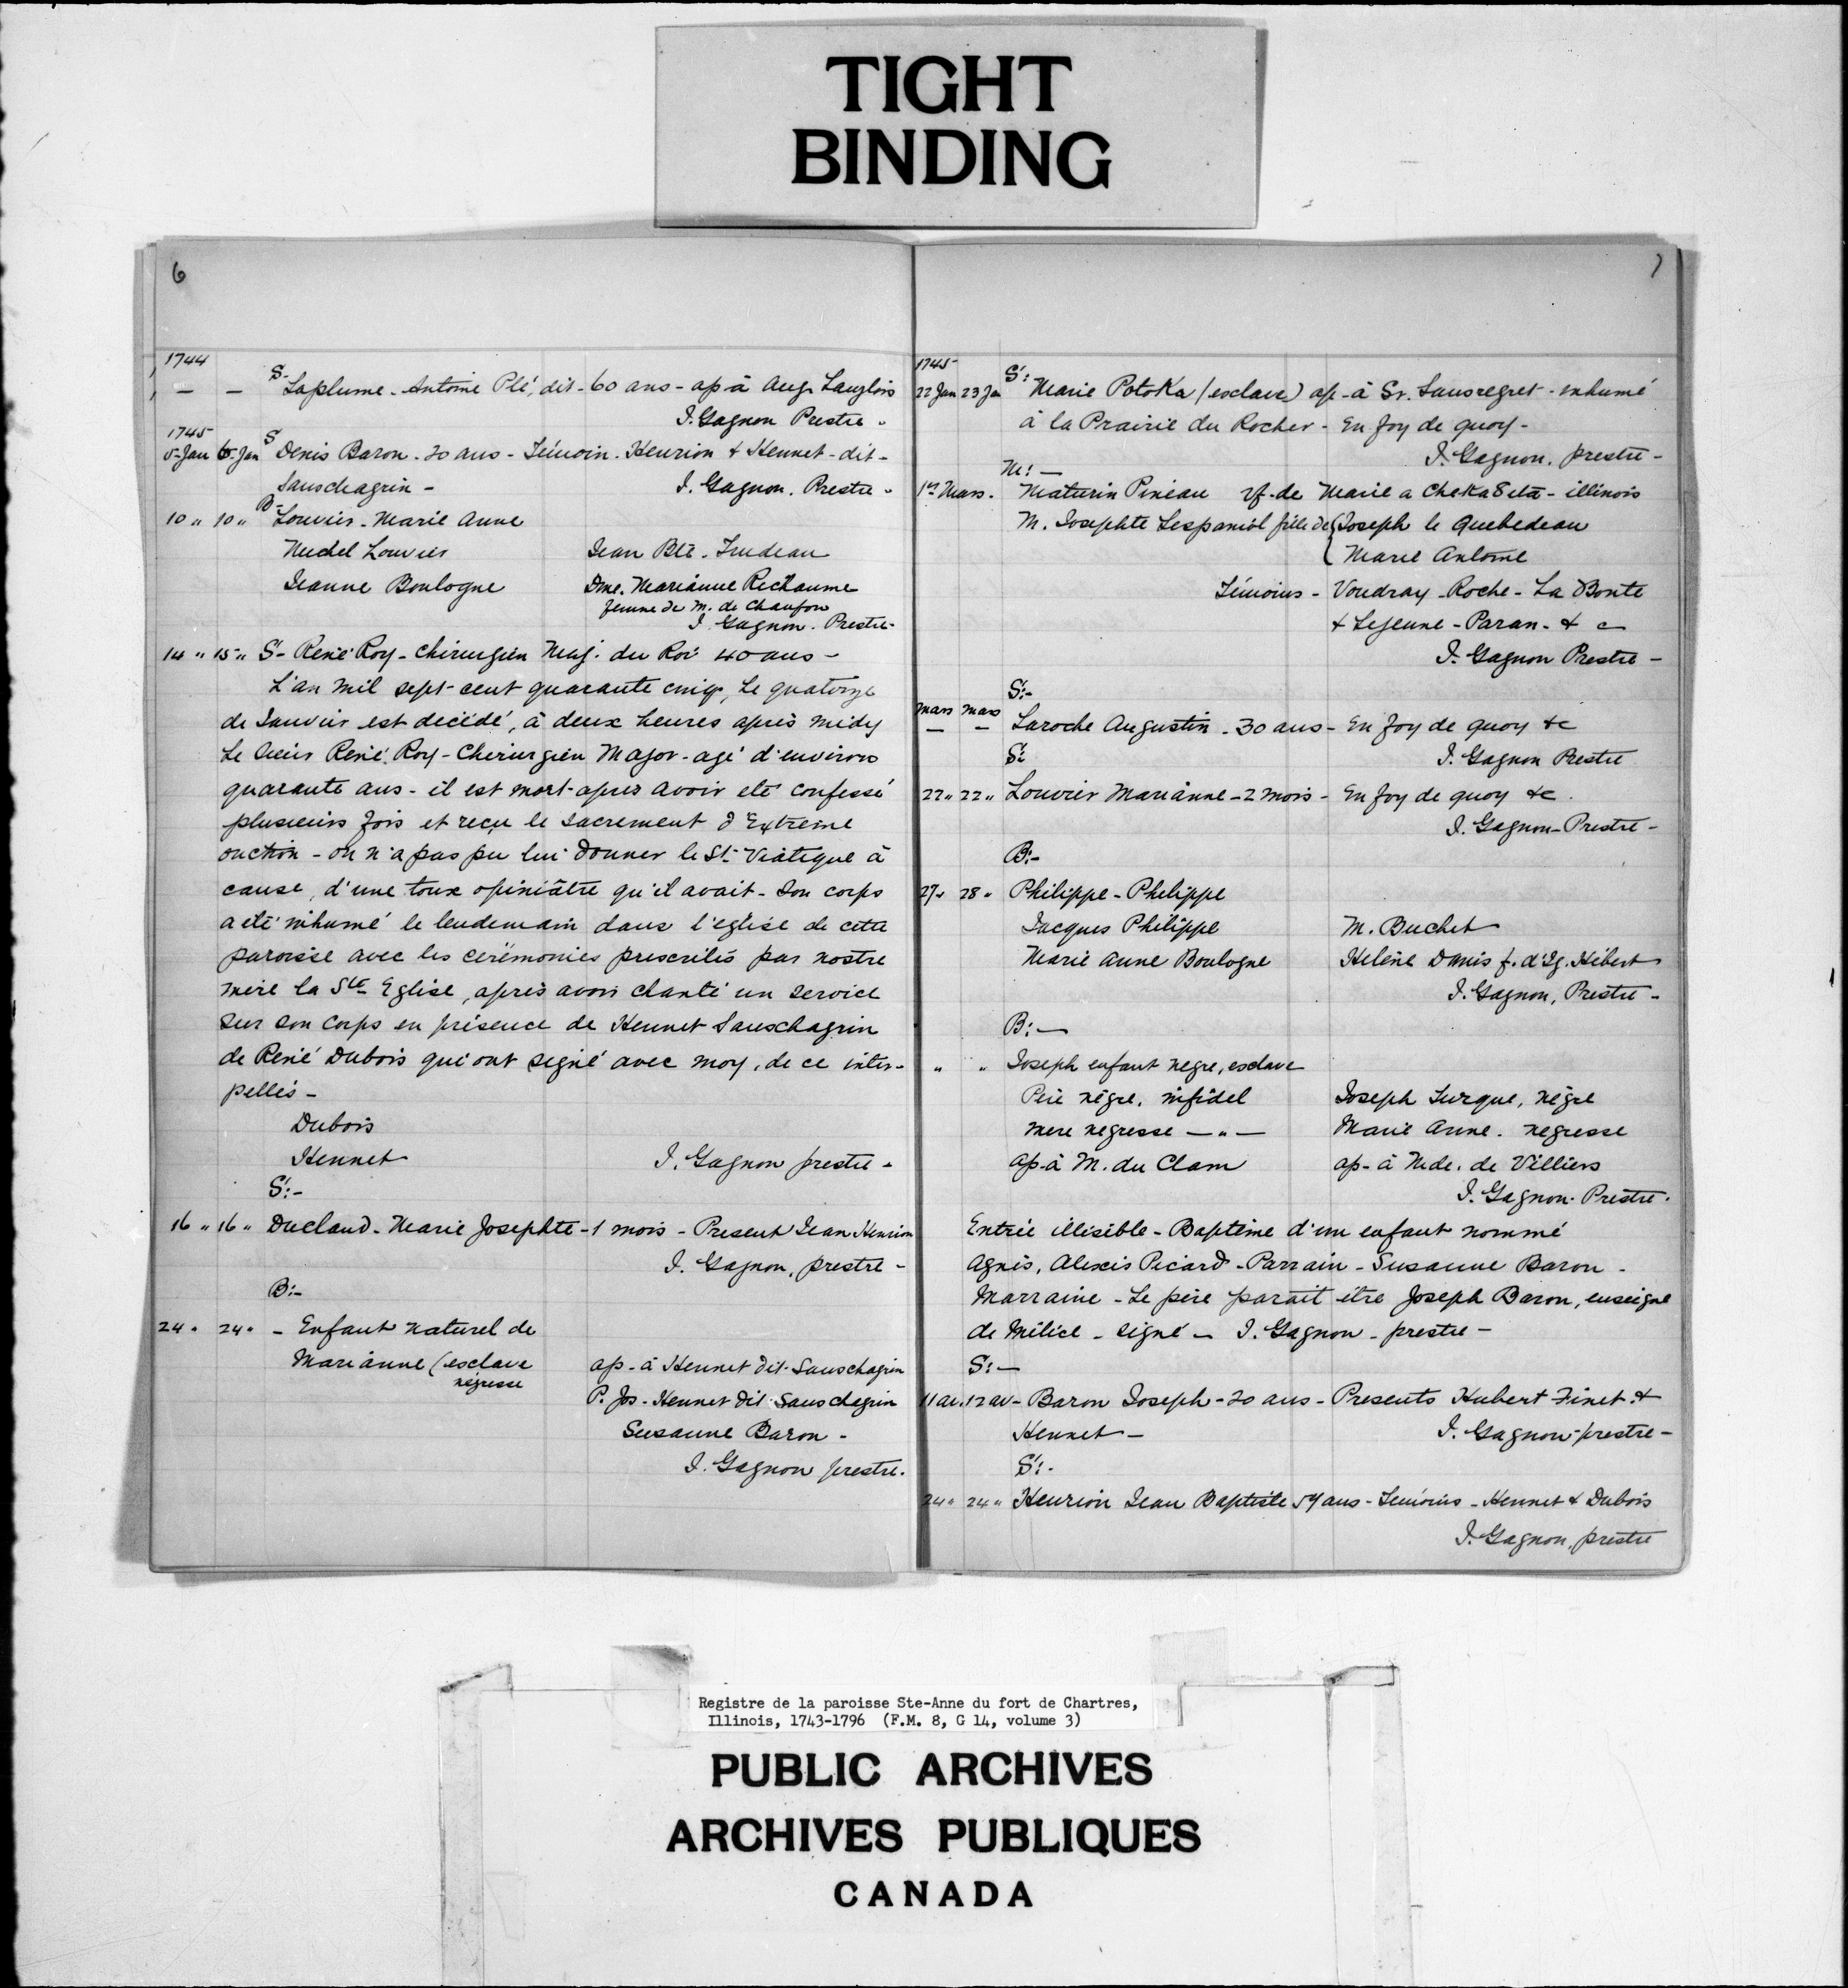 TIGHT
BINDING
6
1744
— — S- Laplume - Antoine Plé, dit - 60 ans - ap-à Aug. Langlois
J. Gagnon Prestre -
1745
5-Jan 6-Jan S Denis Baron - 20 ans - Témoin - Henrion & Hennet - dit -
Sanschagrin - J. Gagnon. Prestre -
10 " 10 " B- Louvier - Marie Anne
Michel Louvier Jean Bte. Trudeau
Jeanne Boulogne Dme. Marianne Richaume
femme de M. de Chaufou
J. Gagnon. Prestre -
14 " 15 " S- René Roy - Chirurgien Maj. du Roi 40 ans -
L'an mil sept-cent quarante cinq, Le quatorze
de Janvier est decédé, à deux heures après midy
Le Sieur René Roy - Chirurgien Major - agé d'environ
quarante ans - il est mort après avoir eté confessé
plusieurs fois et reçu le sacrement d'Extreme
onction - on n'a pas pu lui donner le St. Viatique à
cause, d'une toux opiniâtre qu'il avait - Son corps
a eté inhumé le lendemain dans l'eglise de cette
paroisse avec les cerémonies prescrites par nostre
mere la Ste Eglise, après avoir chanté un service
sur son corps en présence de Hennet Sanschagrin
de René Dubois qui ont signé avec moy, de ce inter-
pellés -
Dubois
Hennet J. Gagnon prestre -
S:-
16 " 16 " Ducland - Marie Josephte - 1 mois - Present Jean Henrion
J. Gagnon, prestre -
B:-
24 " 24 " - Enfant naturel de
Marianne (esclave ap - à Hennet dit - Sanschagrin
négresse
P. Jos - Hennet dit Sanschagrin
Susanne Baron -
J. Gagnon prestre.
7
1745
S:
22 Jan 23 Jan Marie Potoka (esclave) ap - à Sr. Sansregret - inhumé
à la Prairie du Rocher - En foy de quoy -
J. Gagnon, prestre -
M: —
1er Mars. Maturin Pineau vf. de Marie a Cheka8eta - illinois
M. Josephte Lespaniol fille de { Joseph le Quebedeau
Marie Antoine
Témoins - Voudray - Roche - La Bonte
& Lejeune - Paran - & c
J. Gagnon Prestre -
S:-
mars mars
— — Laroche Augustin - 30 ans - En foy de quoy &c
S: J. Gagnon Prestre
22 " 22 " Louvier Marianne - 2 mois - En foy de quoy &c.
J. Gagnon - Prestre -
B:-
27 " 28 " Philippe - Philippe
Jacques Philippe M. Buchet
Marie Anne Boulogne Helene Danis f. d'Ig. Hébert
J. Gagnon, Prestre -
B: —
" " Joseph enfant negre, esclave
Père nègre, infidel Joseph Turque, nègre
mere negresse — " — Marie Anne. negresse
ap-à M. du Clam ap - à Mde. de Villiers
J. Gagnon. Prestre.
Entrée illisible - Baptême d'un enfant nommé
Agnès, Alexis Picard - Parrain - Susanne Baron -
Marraine - Le père parait être Joseph Baron, enseigne
de Milice - signé - J. Gagnon - prestre -
S: —
11 av. 12 av - Baron Joseph - 20 ans - Presents Hubert Finet &
Hennet - J. Gagnon - prestre -
S: -
24 " 24 " Henrion Jean Baptiste 59 ans - Témoins - Hennet & Dubois
J. Gagnon, prestre
Registre de la paroisse Ste-Anne du fort de Chartres,
Illinois, 1743-1796 (F.M. 8, G 14, volume 3)
PUBLIC ARCHIVES
ARCHIVES PUBLIQUES
CANADA